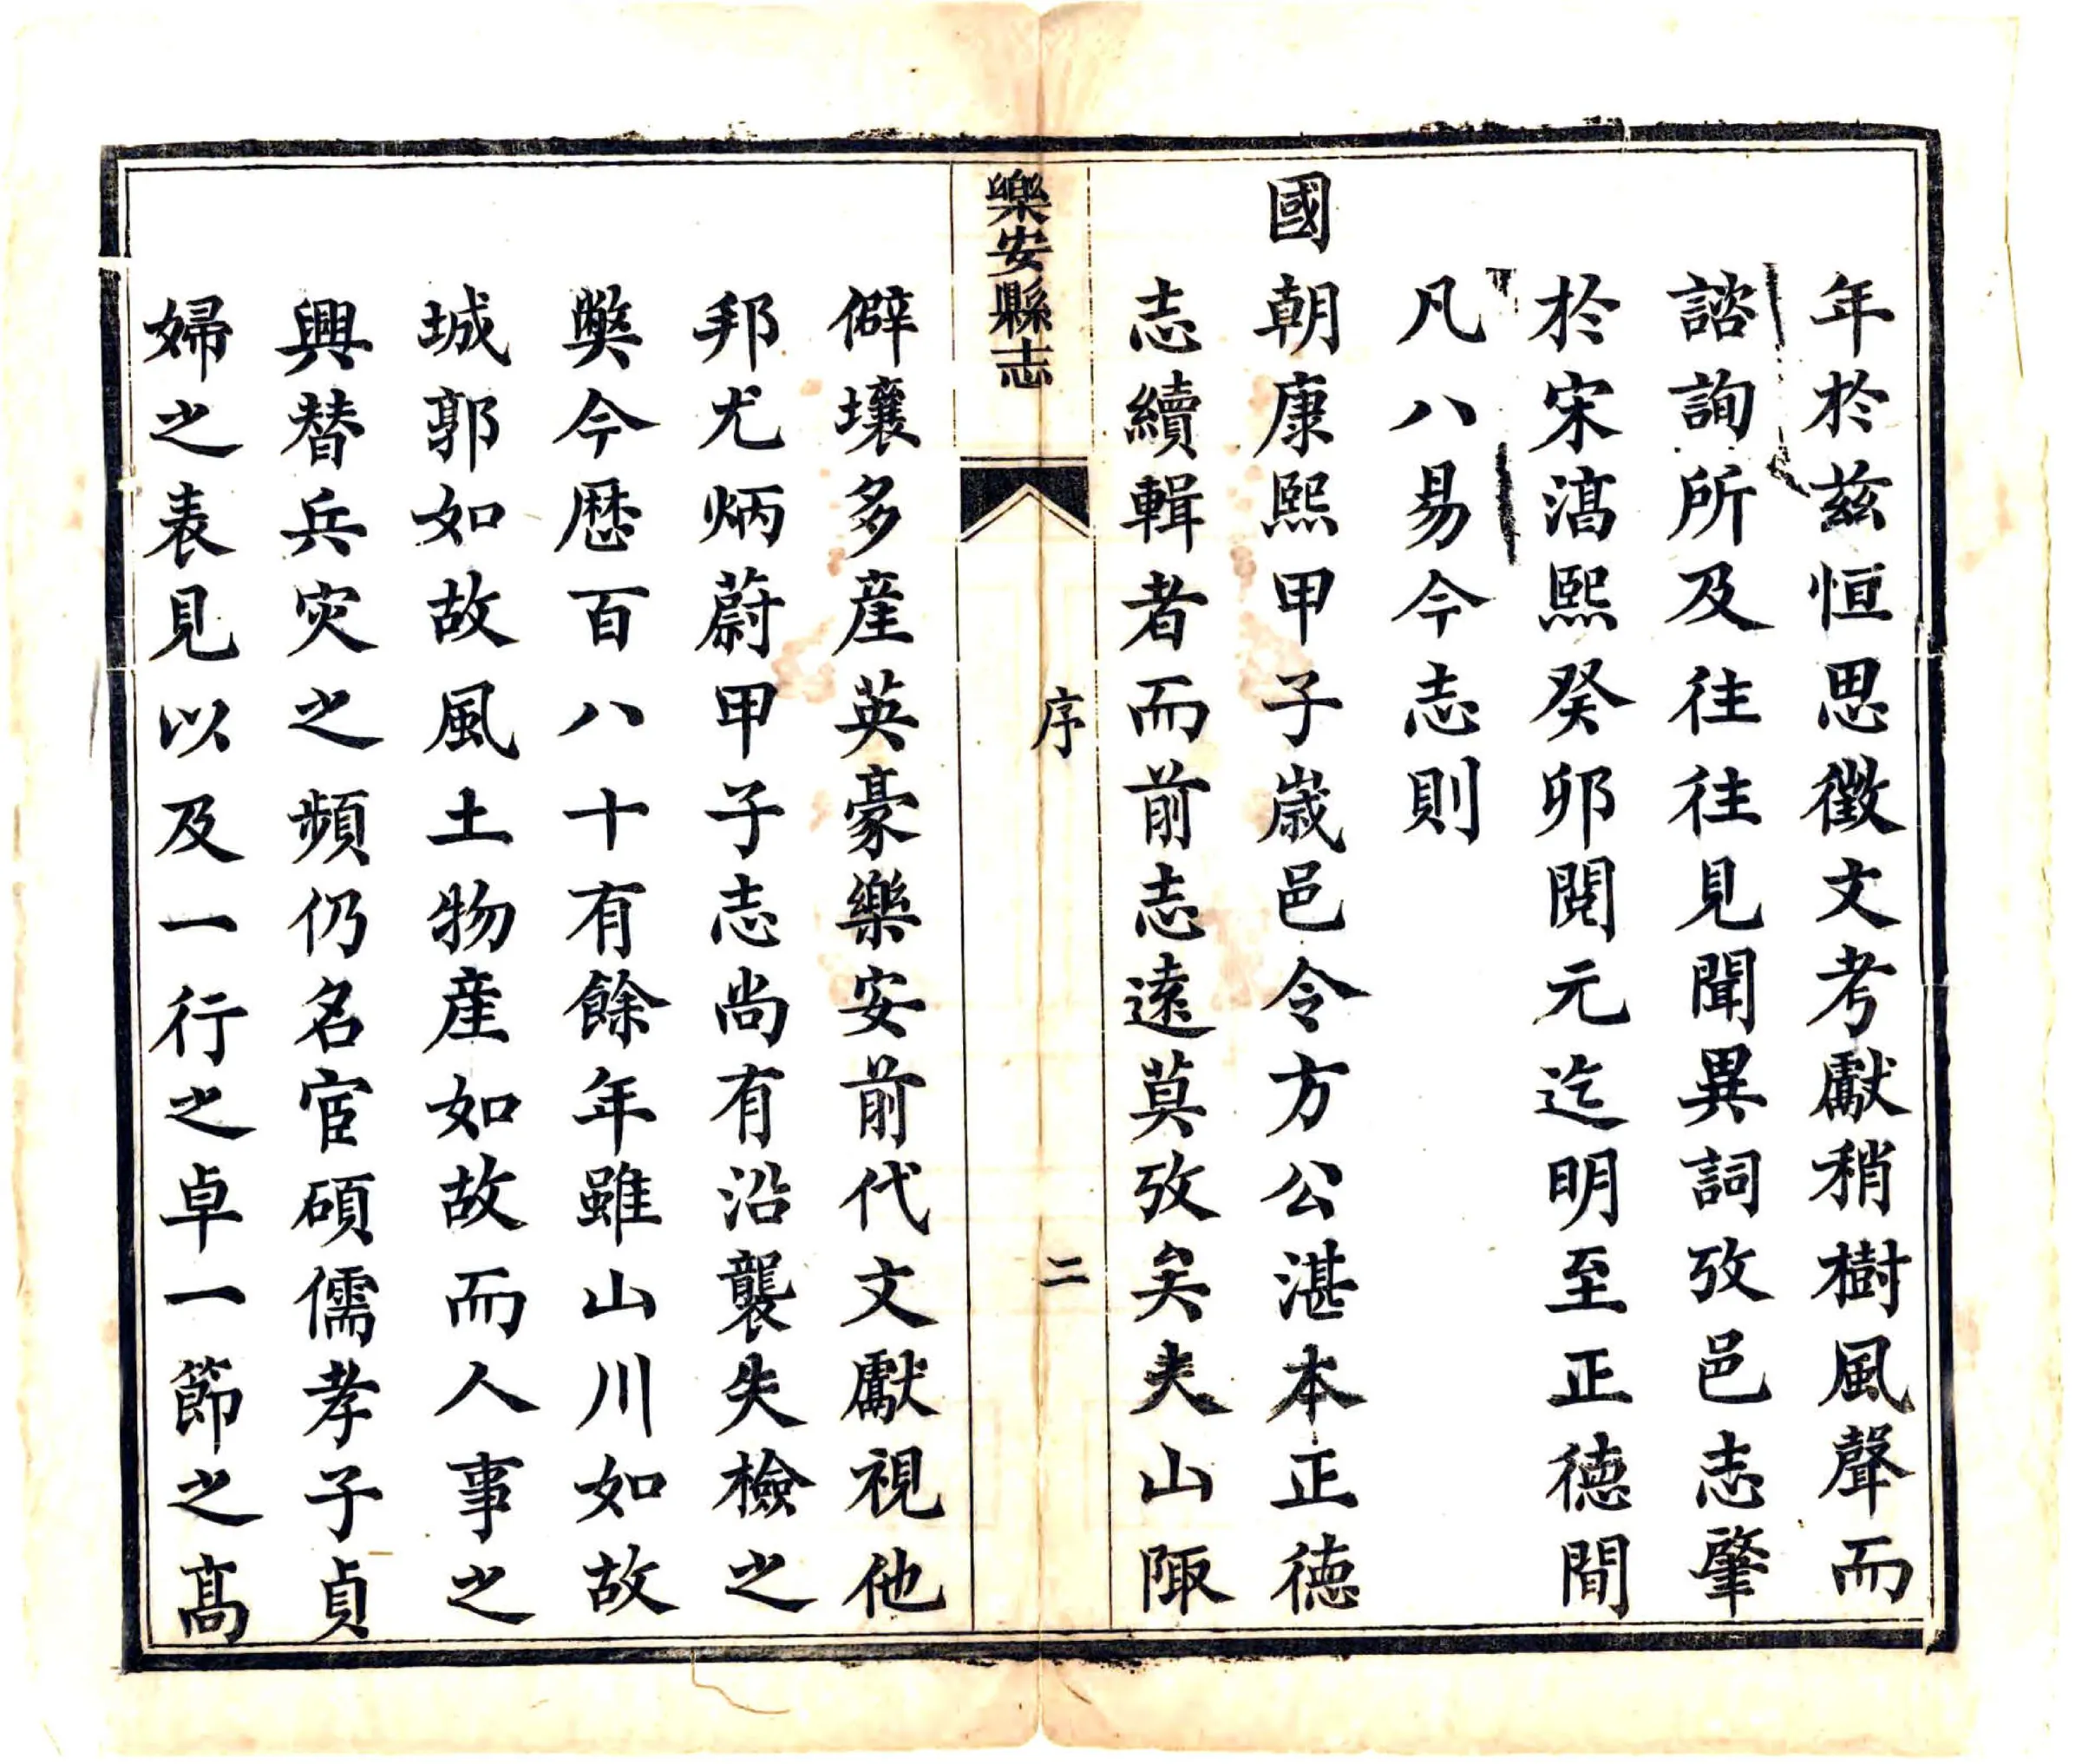 年於兹恒思徵文考獻稍樹風聲而
諮詢所及往往見聞異詞攷邑志肇
於宋滈熙癸卯閱元迄明至正德間
凡八易今志則
國朝康熙甲子歲邑令方公湛本正德
志續輯者而前志遠莫攷矣夫山陬
樂安縣志
序
二
僻壤多産英豪樂安前代文獻視他
邦尤炳蔚甲子志尚有沿襲失檢之
獘今歴百八十有餘年雖山川如故
城郭如故風土物産如故而人事之
興替兵灾之頻仍名宦碩儒孝子貞
婦之表見以及一行之卓一節之髙